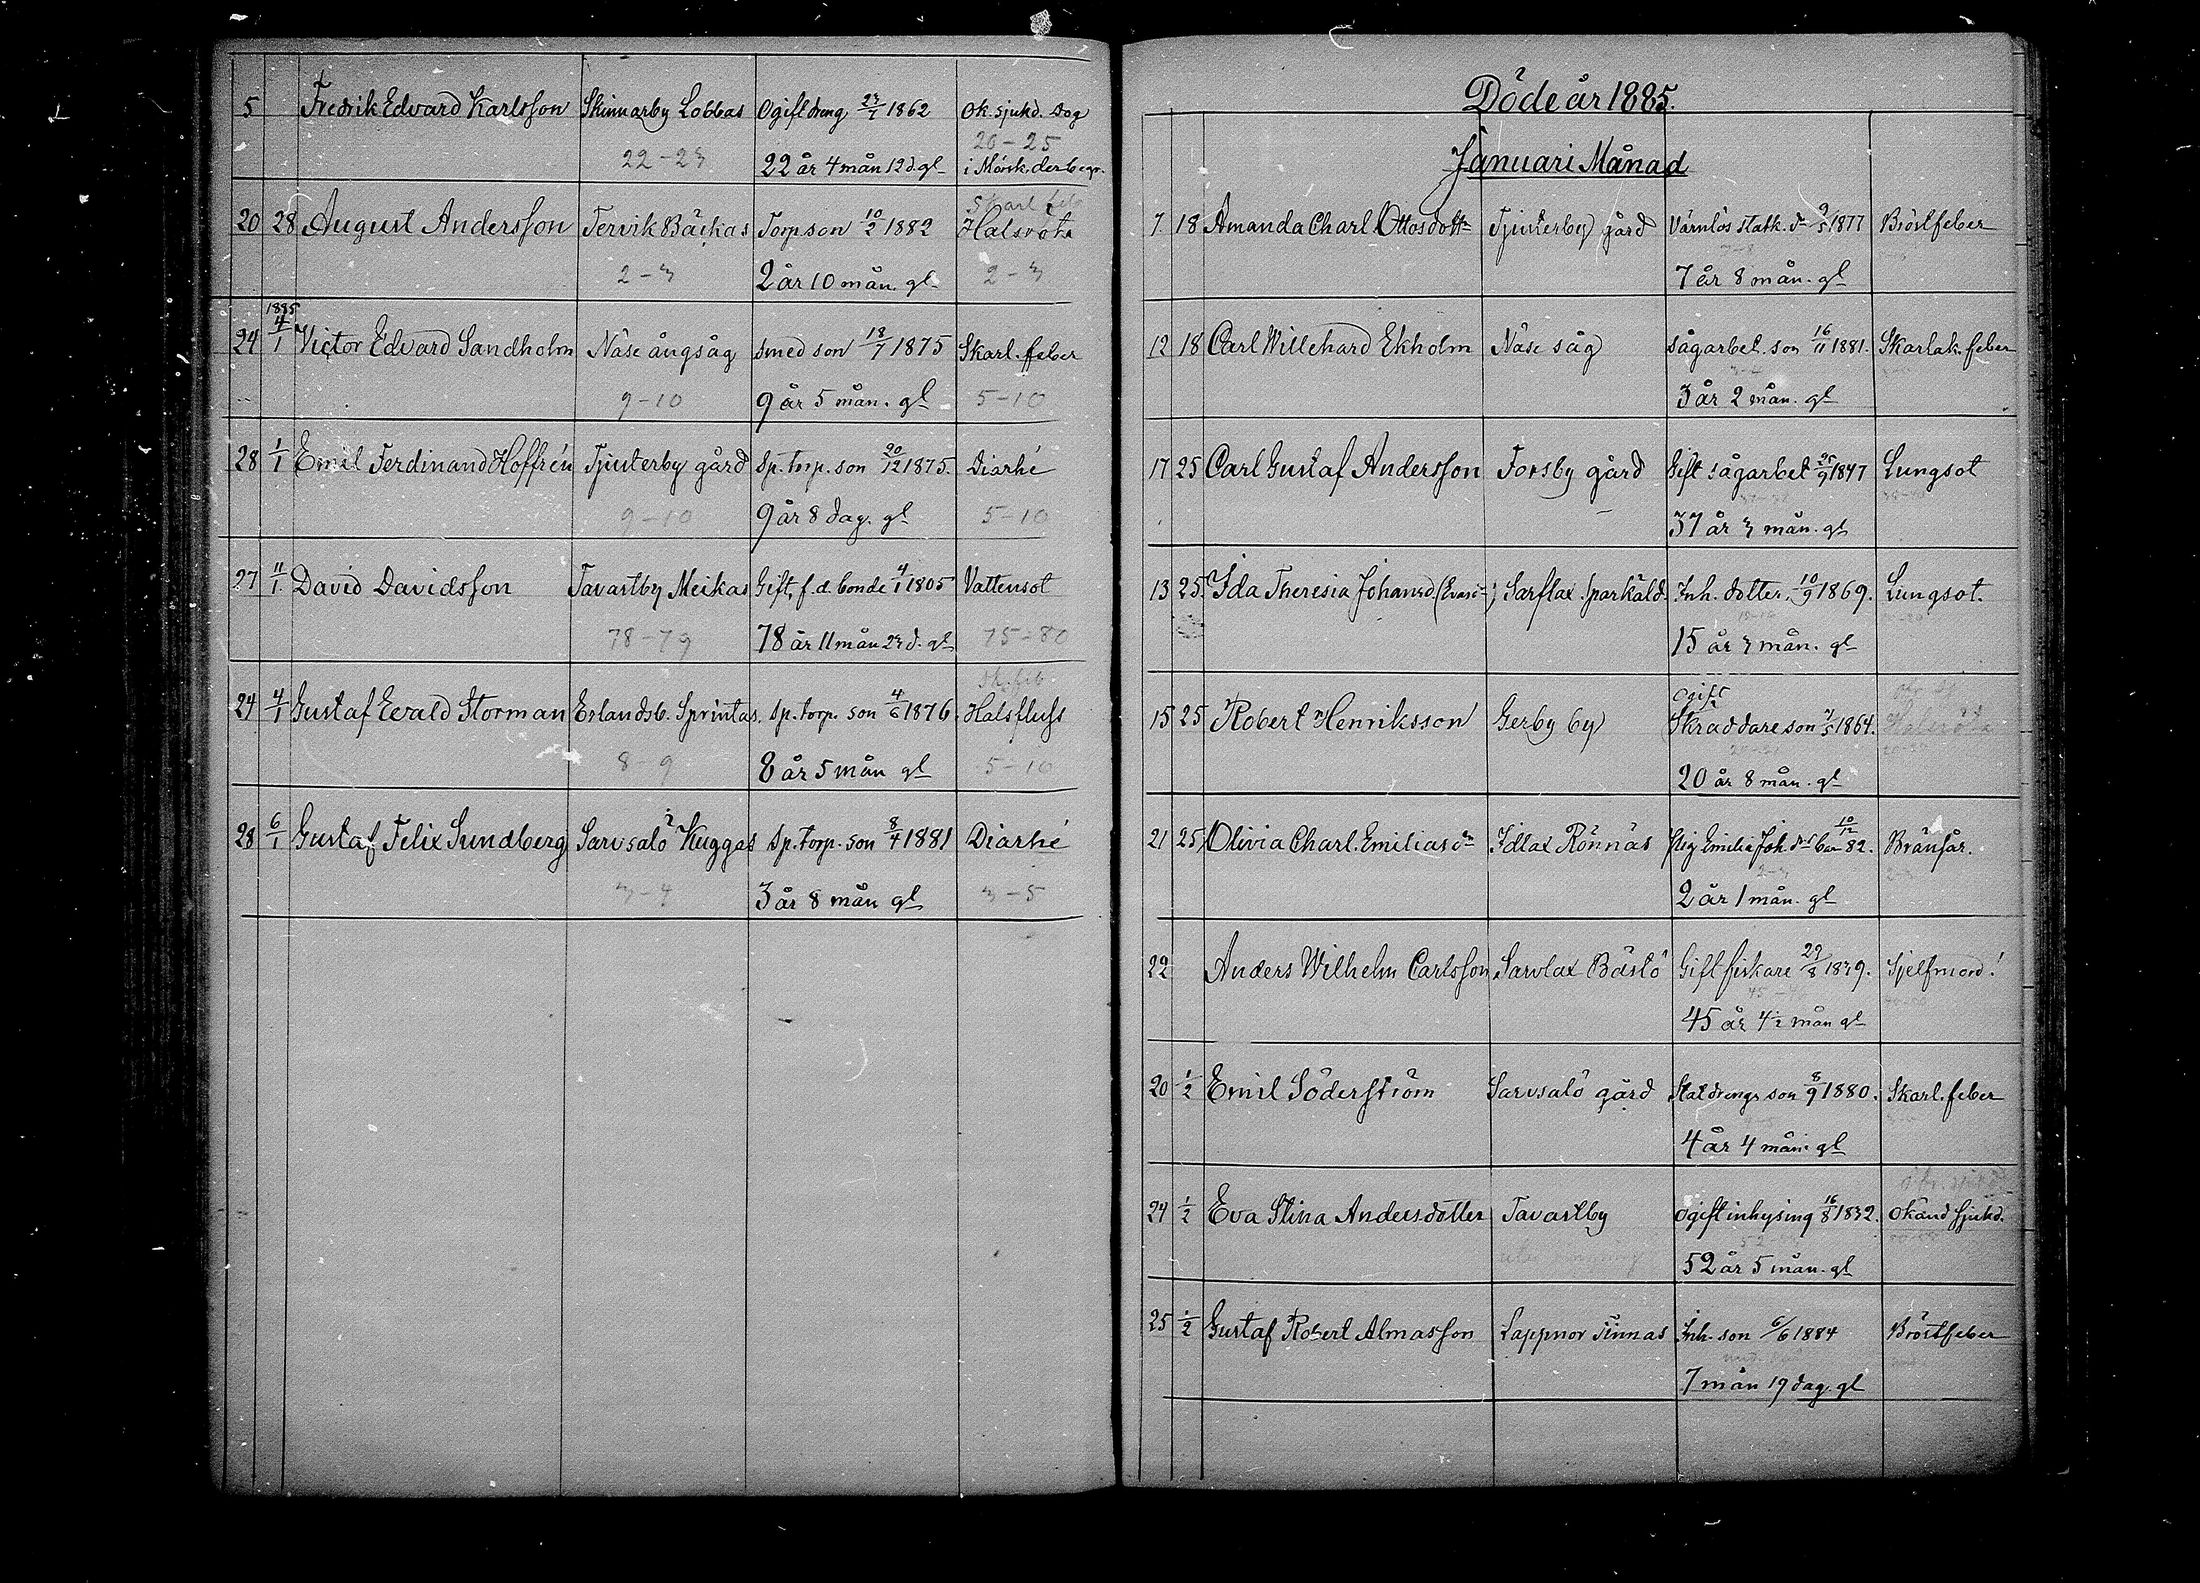 5 Fredrik Edvard Karlsson Skinnarby Lobbas Ogift dreng 23/7 1862 Ok. sjukd. Dog
20-25
22-23 22 år 4 mån 12 d. gl i Mörsk. der begr.
Skarl. feb
20 28 August Andersson Tervik Bäckas Torp son 10/2 1882 Halsröta
2-3 2 år 10 mån. gl 2-3
1885
24 4/1 Victor Edvard Sandholm Näse ångsåg smed son 18/7 1875 Skarl. feber
9-10 9 år 5 mån. gl 5-10
28 1/1 Emil Ferdinand Hoffrén Tjusterby gård Sp. torp. son 20/12 1875. Diarhé
9-10 9 år 8 dag. gl 5-10
27 11/1 David Davidsson Tavastby Meikas Gift, f.d. bonde 4/1 1805 Vattensot
78-79 78 år 11 mån 23 d. gl 75-80
Sk. feb.
24 4/1 Gustaf Evald Storman Erlandsb. Sprintas. Sp. torp. son 4/6 1876. Halsfluss
8-9 8 år 5 mån gl 5-10
28 6/1 Gustaf Felix Sundberg Sarvsalö Kuggas Sp. torp. son 8/4 1881 Diarhé
3-4 3 år 8 mån gl 3-5
Döde år 1885.
Januari Månad
7 18 Amanda Charl. Ottosdottr Tjusterby gård Värnlös statk. dr 9/5 1877 Bröstfeber
7-8
7 år 8 mån. gl
12 18 Carl Willehard Ekholm Näse såg sågarbet. son 16/11 1881. Skarlak. feber
3-4
3 år 2 mån. gl
17 25 Carl Gustaf Andersson Forsby gård Gift sågarbet 25/9 1847 Lungsot
37 år 3 mån. gl
13 25 Ida Theresia Johansd Sarflax Sparkäld. Inh. dotter, 10/9 1869. Lungsot.
15-16
15 år 3 mån. gl
Ogift
15 25 Robert Henriksson Gerby by Skräddare son 7/5 1864. Halsröta
20 år 8 mån. gl
21 25 Olivia Charl. Emiliasdr Idlax Rönnäs Pig Emilia Joh. drs barn 10/12 82. Bränsår.
2-3
2 år 1 mån. gl
22 Anders Wilhelm Carlsson Sarvlax Bästö Gift fiskare 29/8 1839. Sjelfmord!
45 år 4 1/2 mån gl
20 1/2 Emil Söderström Sarvsalö gård Statdrengs son 8/9 1880. Skarl. feber
4 år 4 mån. gl
24 1/2 Eva Stina Andersdotter Tavastby Ogift inhysing 16/8 1832. Okänd sjukd.
52 år 5 mån. gl
25 1/2 Gustaf Robert Almasson Lappnor Finnas Inh. son 6/6 1884 Bröstfeber
7 mån 19 dag. gl